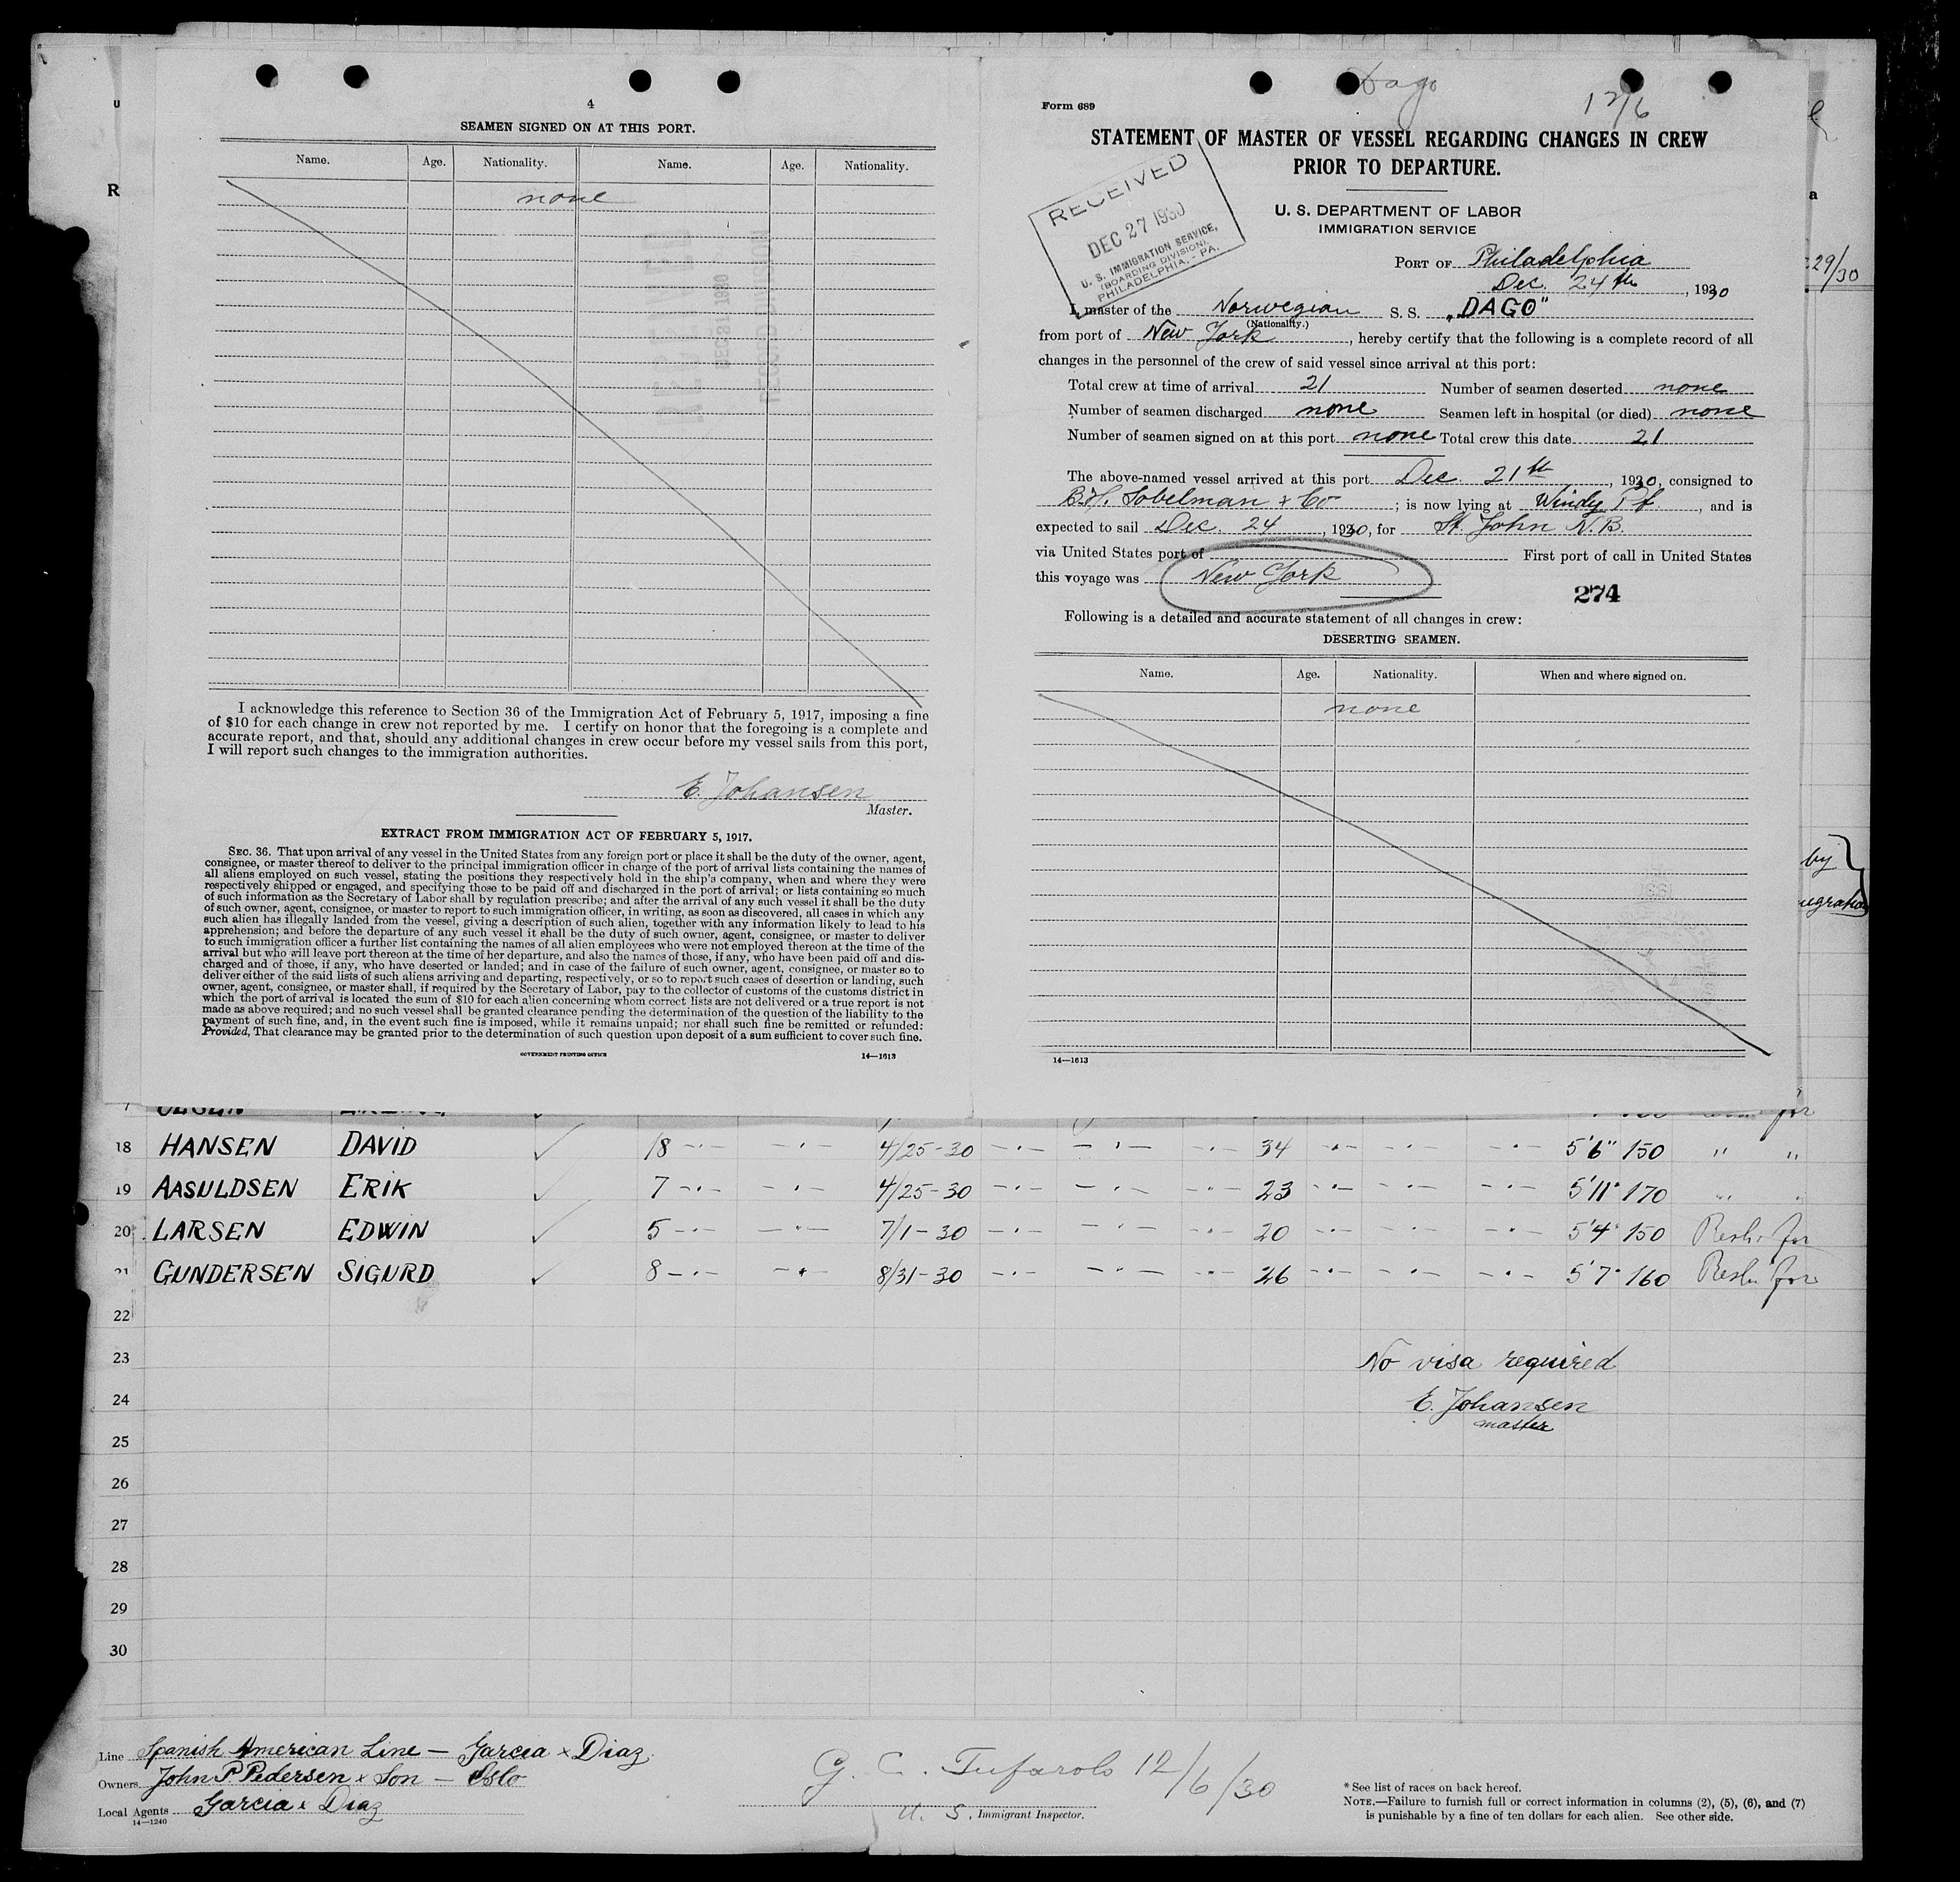 4
SEAMEN SIGNED ON AT THIS PORT.
Name. Age. Nationality. Name. Age. Nationality.
none
I acknowledge this reference to Section 36 of the Immigration Act of February 5, 1917, imposing a fine
of $10 for each change in crew not reported by me. I certify on honor that the foregoing is a complete and
accurate report, and that, should any additional changes in crew occur before my vessel sails from this port,
I will report such changes to the immigration authorities.
E. Johansen
Master.
EXTRACT FROM IMMIGRATION ACT OF FEBRUARY 5, 1917.
SEC. 36. That upon arrival of any vessel in the United States from any foreign port or place it shall be the duty of the owner, agent,
consignee, or master thereof to deliver to the principal immigration officer in charge of the port of arrival lists containing the names of
all aliens employed on such vessel, stating the positions they respectively hold in the ship's company, when and where they were
respectively shipped or engaged, and specifying those to be paid off and discharged in the port of arrival; or lists containing so much
of such information as the Secretary of Labor shall by regulation prescribe; and after the arrival of any such vessel it shall be the duty
of such owner, agent, consignee, or master to report to such immigration officer, in writing, as soon as discovered, all cases in which any
such alien has illegally landed from the vessel, giving a description of such alien, together with any information likely to lead to his
apprehension; and before the departure of any such vessel it shall be the duty of such owner, agent, consignee, or master to deliver
to such immigration officer a further list containing the names of all alien employees who were not employed thereon at the time of the
arrival but who will leave port thereon at the time of her departure, and also the names of those, if any, who have been paid off and dis-
charged and of those, if any, who have deserted or landed; and in case of the failure of such owner, agent, consignee, or master so to
deliver either of the said lists of such aliens arriving and departing, respectively, or so to report such cases of desertion or landing, such
owner, agent, consignee, or master shall, if required by the Secretary of Labor, pay to the collector of customs of the customs district in
which the port of arrival is located the sum of $10 for each alien concerning whom correct lists are not delivered or a true report is not
made as above required; and no such vessel shall be granted clearance pending the determination of the question of the liability to the
payment of such fine, and, in the event such fine is imposed, while it remains unpaid; nor shall such fine be remitted or refunded:
Provided, That clearance may be granted prior to the determination of such question upon deposit of a sum sufficient to cover such fine.
GOVERNMENT PRINTING OFFICE 14—1613
Dago
12/6
Form 689
STATEMENT OF MASTER OF VESSEL REGARDING CHANGES IN CREW
PRIOR TO DEPARTURE.
RECEIVED
DEC 27 1930
U. S. IMMIGRATION SERVICE,
(BOARDING DIVISION),
PHILADELPHIA, - PA.
U. S. DEPARTMENT OF LABOR
IMMIGRATION SERVICE
PORT OF Philadelphia
Dec. 24th, 1930
I, master of the Norwegian S. S. „DAGO"
(Nationality.)
from port of New York, hereby certify that the following is a complete record of all
changes in the personnel of the crew of said vessel since arrival at this port:
Total crew at time of arrival 21 Number of seamen deserted none
Number of seamen discharged none Seamen left in hospital (or died) none
Number of seamen signed on at this port none Total crew this date 21
The above-named vessel arrived at this port Dec. 21th, 1930, consigned to
B.H. Sobelman & Co; is now lying at Windy Pt, and is
expected to sail Dec. 24, 1930, for St. John N.B.
via United States port of First port of call in United States
this voyage was New York
274
Following is a detailed and accurate statement of all changes in crew:
DESERTING SEAMEN.
Name. Age. Nationality. When and where signed on.
none
14—1613
29/30
by
18 HANSEN DAVID ✓ 18 -"- -"- 4/25-30 -"- -"- -"- 34 -"- -"- -"- 5'6" 150 " "
19 AASULDSEN ERIK ✓ 7 -"- -"- 4/25-30 -"- -"- -"- 23 -"- -"- -"- 5'11" 170 " "
20 LARSEN EDWIN ✓ 5 -"- -"- 7/1-30 -"- -"- -"- 20 -"- -"- -"- 5'4" 150
21 GUNDERSEN SIGURD ✓ 8 -"- -"- 8/31-30 -"- -"- -"- 26 -"- -"- -"- 5'7" 160
22
23 No visa required
24 E. Johansen
master
25
26
27
28
29
30
Line Spanish American Line — Garcia & Diaz.
Owners John P. Pedersen & Son — Oslo
Local Agents Garcia & Diaz
14—1240
12/6/30
U. S. Immigrant Inspector.
* See list of races on back hereof.
NOTE.—Failure to furnish full or correct information in columns (2), (5), (6), and (7)
is punishable by a fine of ten dollars for each alien. See other side.